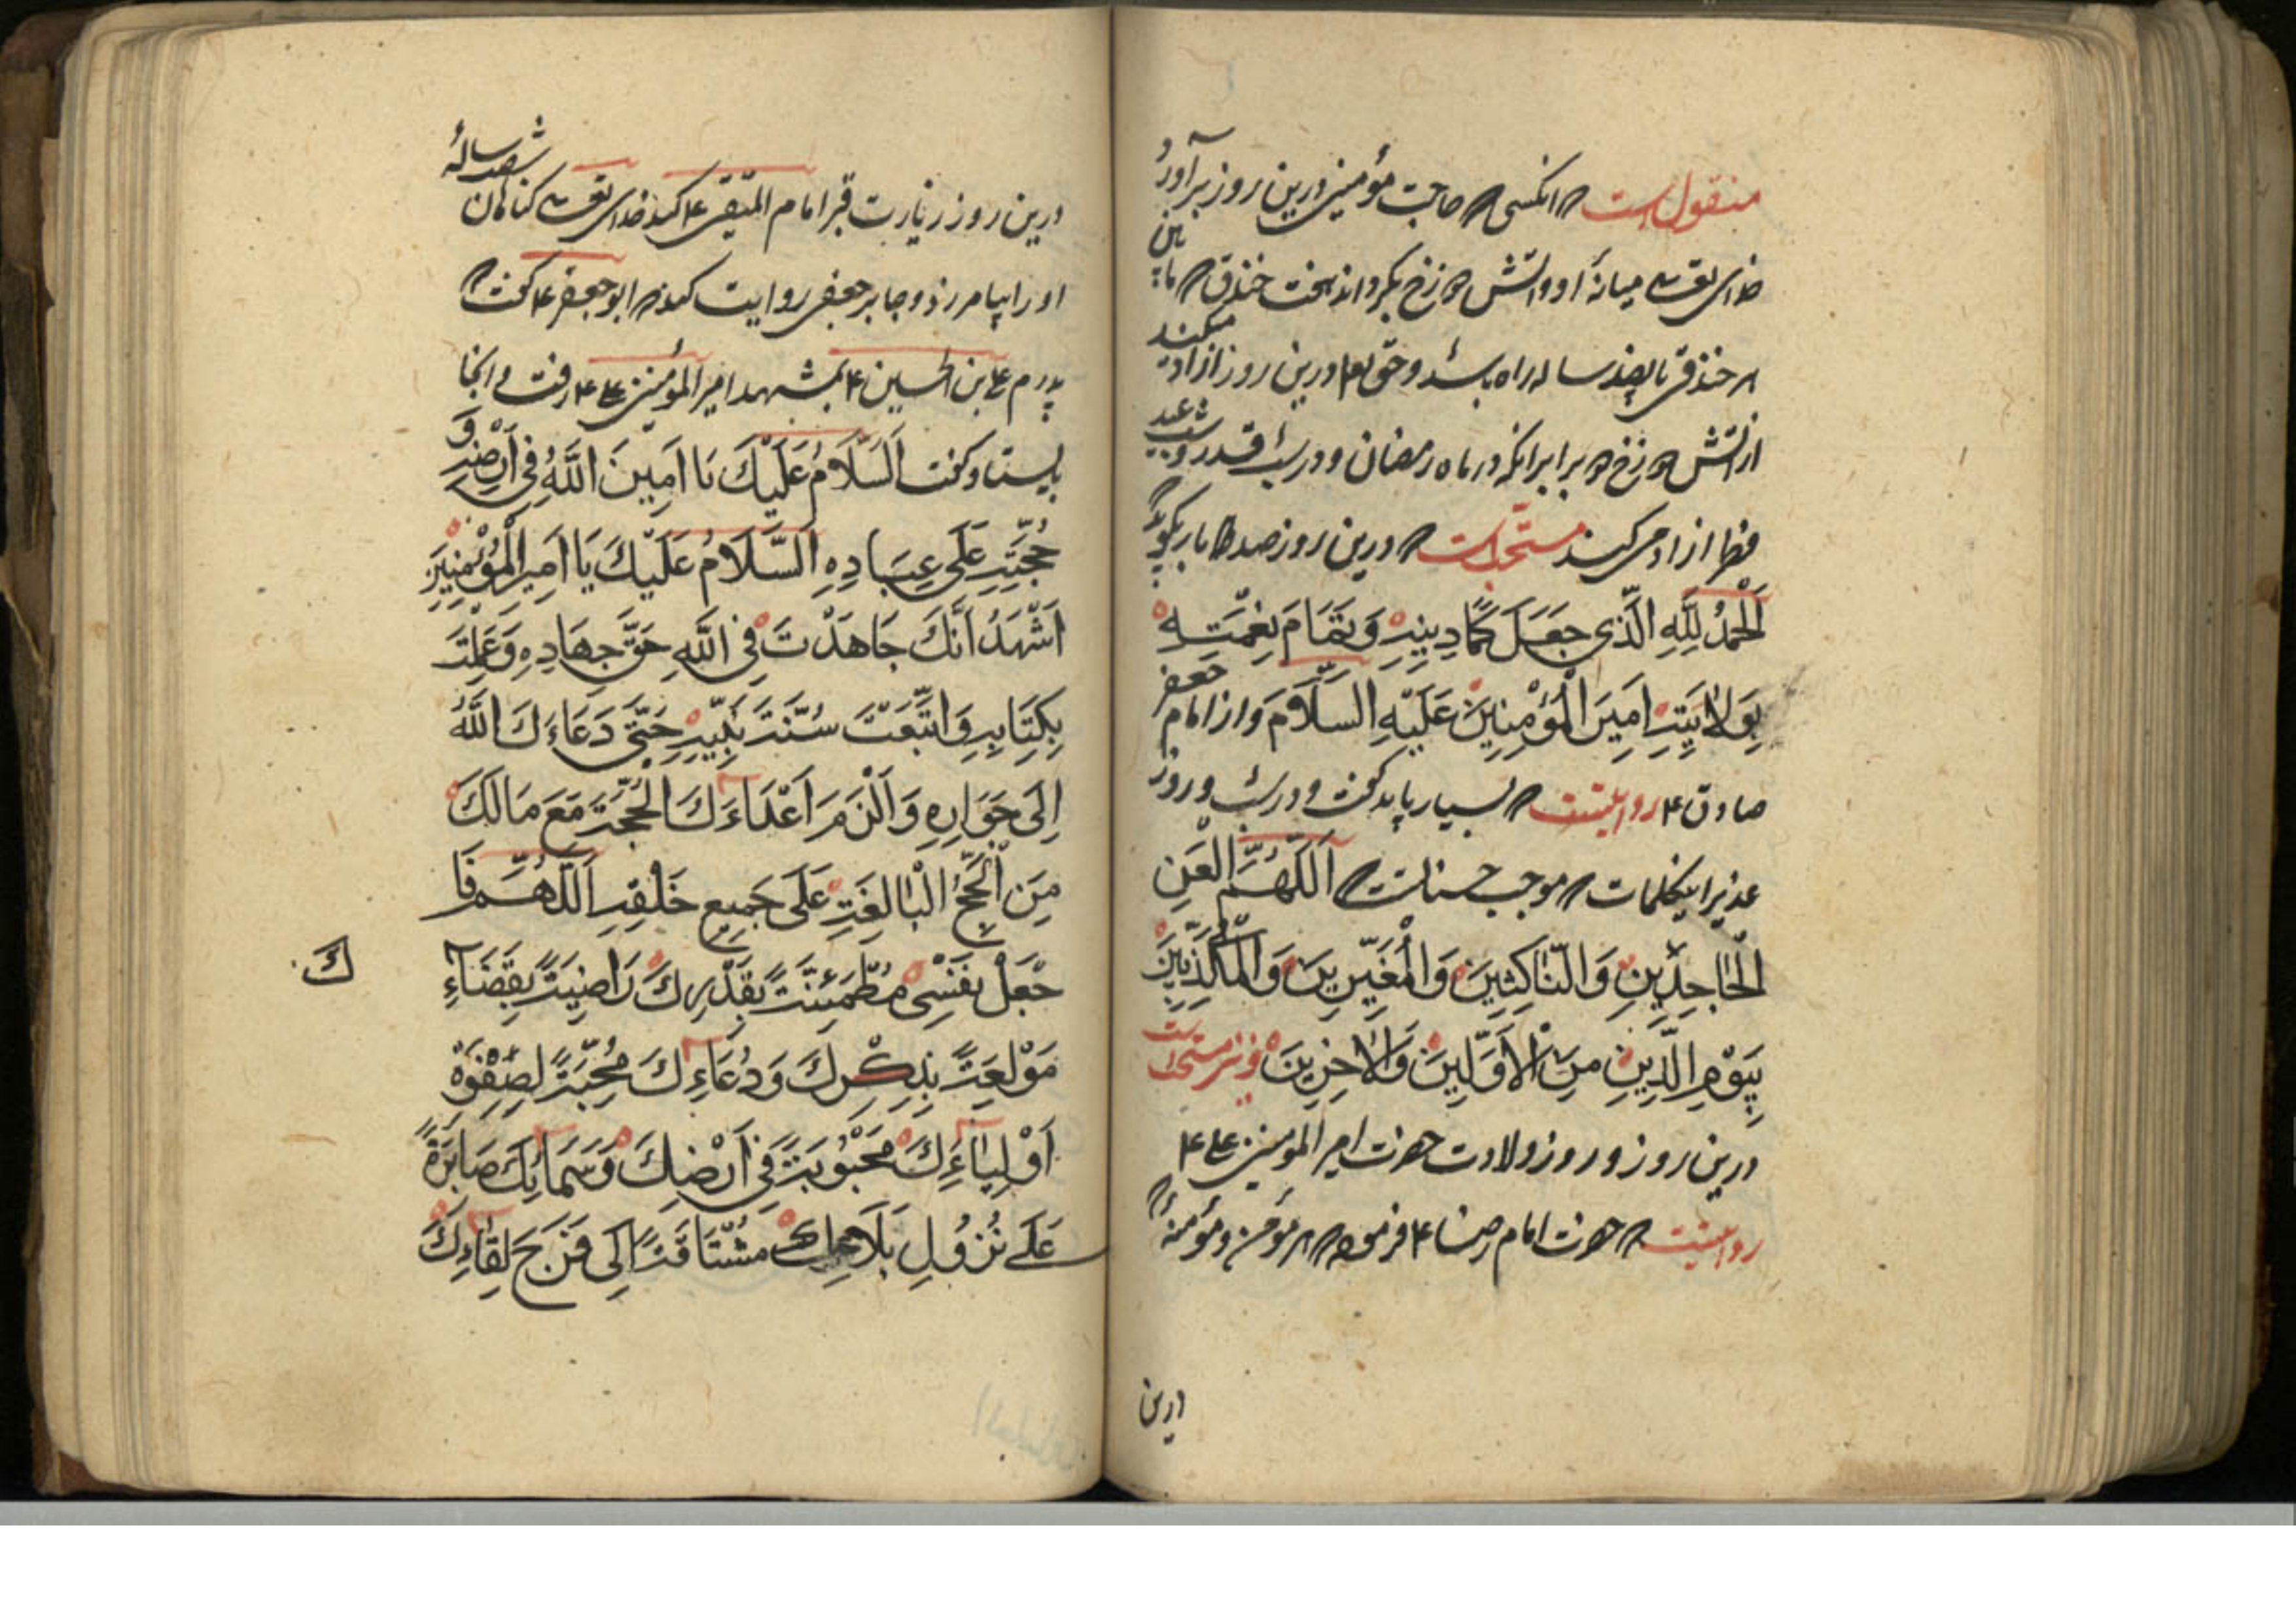 منقول است که انکسی که حاجت مؤمنی درین روز برآورد
خدای تعالی میانهٔ او و آتش دوزخ بکرداند هفت خندق که مابین
هر خندقی تا پانصد ساله راه باشد و حق تعالی درین روز ازاد میکند
از آتش دوزخ دو برابر انکه در ماه رمضان و در شب قدر و شب عید
فطر ازاد می کند مستحب است که درین روز صد بار بکوید
اَلْحَمْدُ لِلّٰهِ الَّذِی جَعَلَ کَمَالَ دِینِهِ وَ تَمَامَ نِعْمَتِهِ
بِوِلَایَةِ اَمِیرَ الْمُؤْمِنِینَ عَلَیْهِ السَّلَامُ وَ از امام جعفر
صادق ع روایتست که بسیار باید کفت و در شب و روز
غدیر اینکلمات که موجب حسنات است اَللّٰهُمَّ الْعَنِ
الْجَاحِدِینَ وَ النَّاکِثِینَ وَ الْمُغَیِّرِینَ وَ الْمُکَذِّبِینَ
بِیَوْمِ الدِّینِ مِنَ الْاَوَّلِینَ وَ الْاٰخِرِینَ و نیز مستحب است
درین روز و روز ولادت حضرت امیر المومنین علی ع
روایتست که حضرت امام رضا ع فرموده که هر مؤمن و مؤمنهٔ که
درین
درین روز زیارت قبر امام المتقین ع کند خدای تعالی کناهان شصت سالهٔ
او را بیامرزد و جابر جعفی روایت کند که ابو جعفر ع کفت که
پدرم علی بن الحسین ع بمشهد امیر المؤمنین علی ع رفت و انجا
بایستاد و کفت اَلسَّلَامُ عَلَیْكَ یَا اَمِینَ اللّٰهِ فِی اَرْضِهِ وَ
حُجَّتِهِ عَلَی عِبَادِهِ اَلسَّلَامُ عَلَیْكَ یَا اَمِیرَ الْمُؤْمِنِینَ
اَشْهَدُ اَنَّكَ جَاهَدْتَ فِی اللّٰهِ حَقَّ جِهَادِهِ وَ عَمِلْتَ
بِکِتَابِهِ وَ اتَّبَعْتَ سُنَّةَ نَبِیِّهِ حَتَّی دَعَاءَكَ اللّٰهُ
اِلَی جَوَارِهِ وَ اَلْزَمَ اَعْدَاءَكَ الْحُجَّةَ مَعَ مَالَكَ
مِنَ الْحُجَجِ الْبَالِغَةِ عَلَی جَمِیعِ خَلْقِهِ اَللّٰهُمَّ فَا
جْعَلْ نَفْسِی مُطْمَئِنَّةً بِقَدَرِكَ رَاضِیَةً بِقَضَاءِ
كَ
مَوْلَعَةً بِذِکْرِكَ وَ دُعَاءِكَ مُحِبَّةً لِصَفْوَةِ
اَوْلِیَاءِكَ مَحْبُوبَةً فِی اَرْضِكَ وَ سَمَائِكَ صَابِرَةً
عَلَی نُزُولِ بَلَاءِكَ مُشْتَاقَةً اِلَی فَرَجِ لِقَاءِكَ